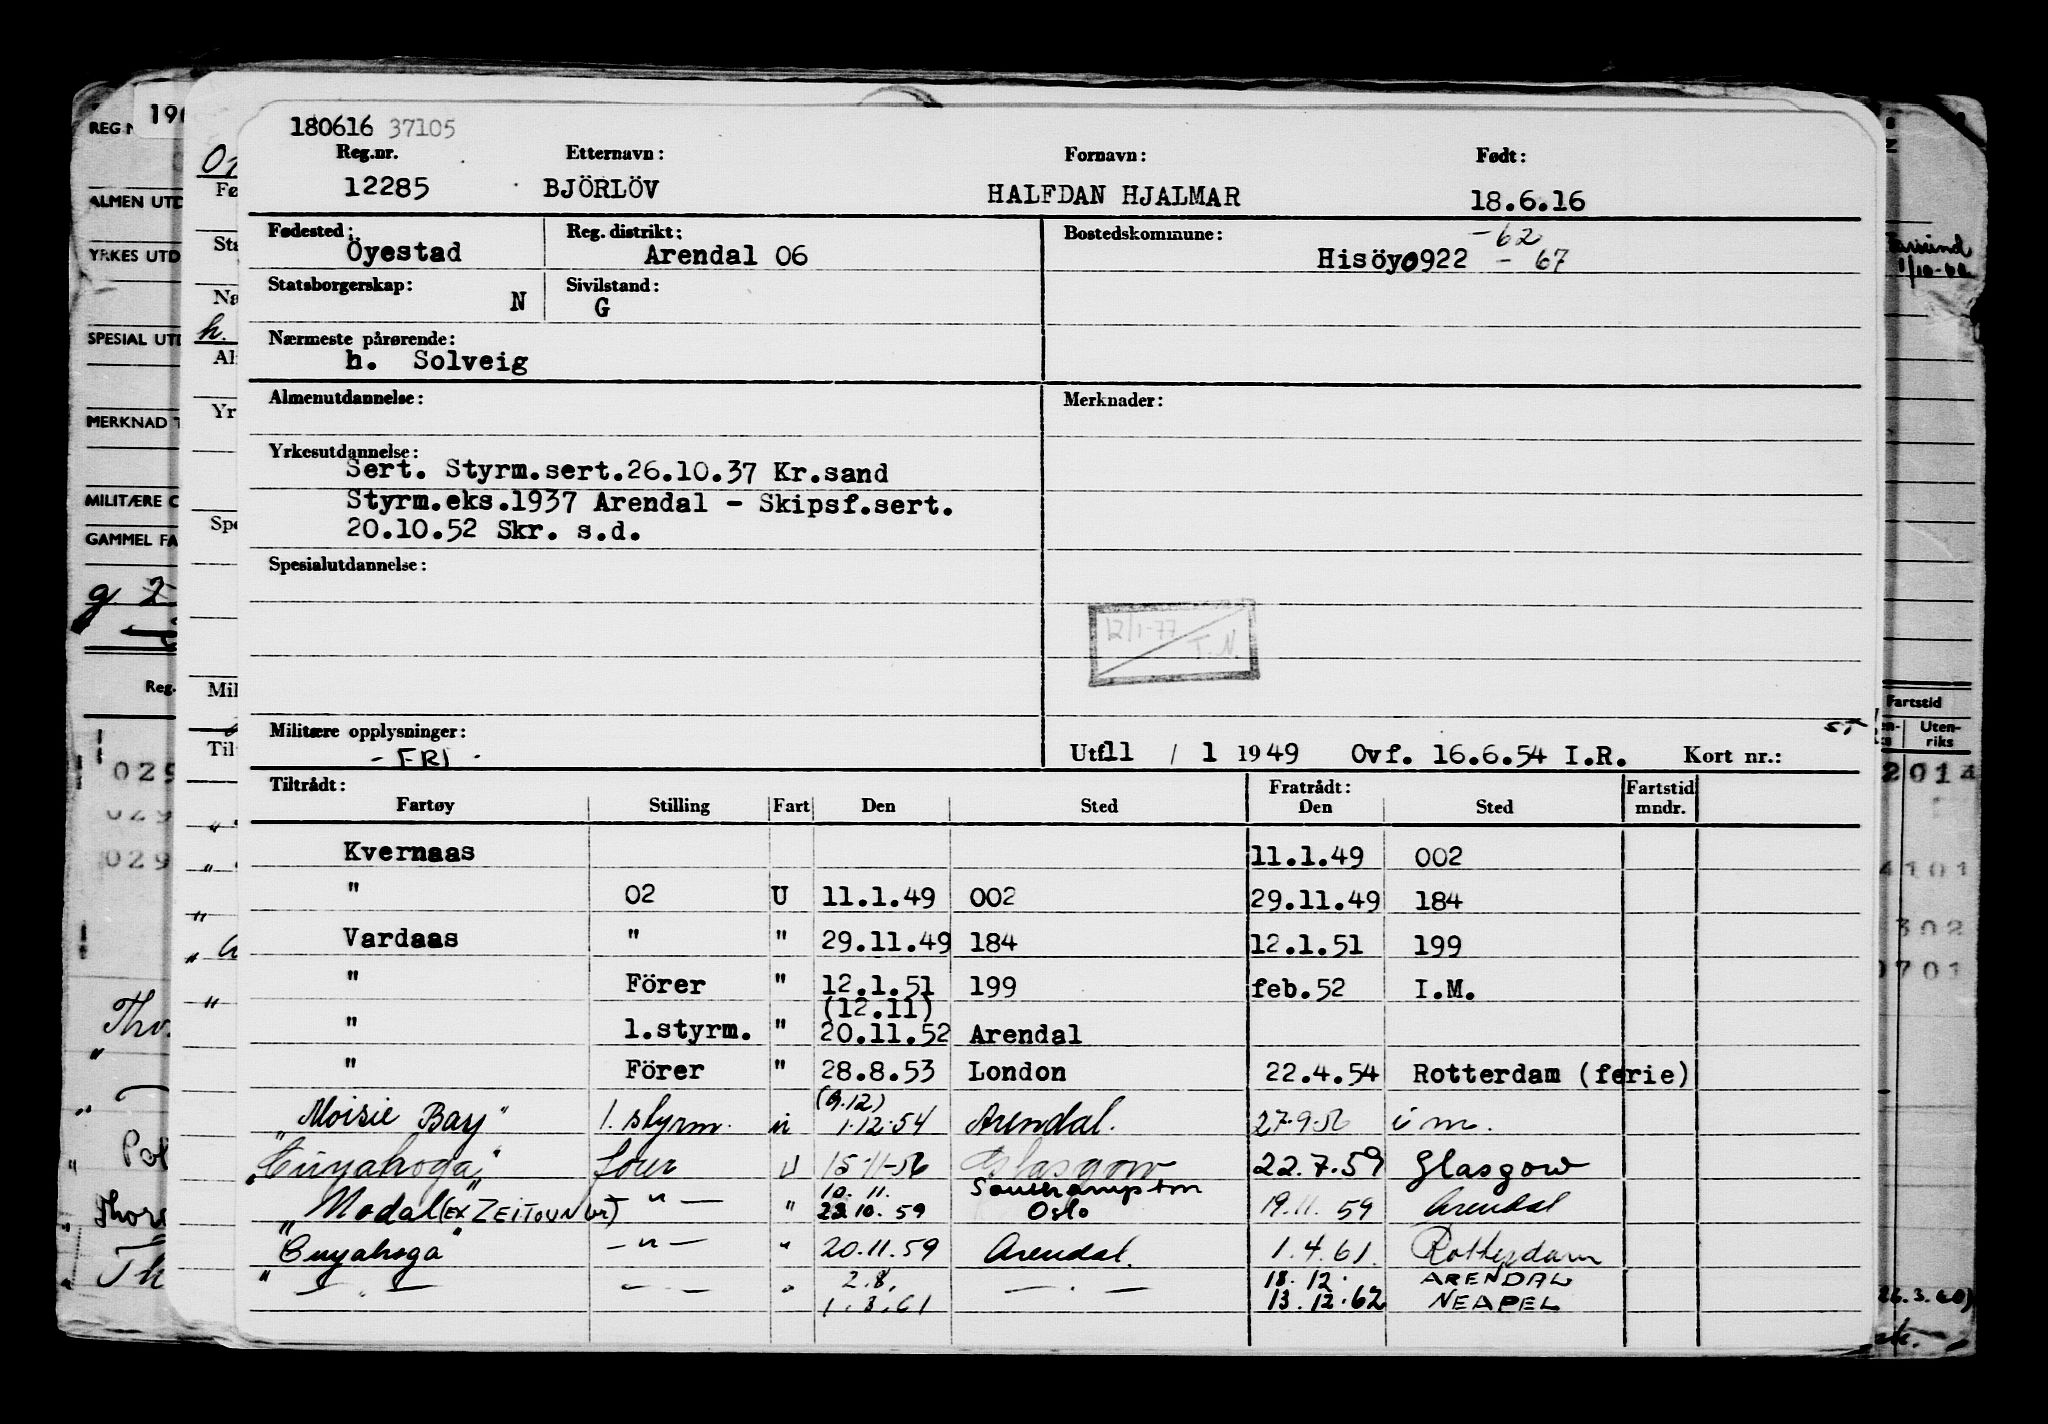 180616 37105
Reg.nr. Etternavn: Fornavn: Født:
12285 BJÖRLÖV HALFDAN HJALMAR 18.6.16
Fødested: Reg. distrikt: Bostedskommune: -62
Öyestad Arendal 06 Hisöy0922 - 67
Statsborgerskap: N Sivilstand: G
Nærmeste pårørende:
h. Solveig
Almenutdannelse: Merknader:
Yrkesutdannelse:
Sert. Styrm.sert.26.10.37 Kr.sand
Styrm.eks.1937 Arendal - Skipsf.sert.
20.10.52 Skr. s.d.
Spesialutdannelse:
12/1-77
T.N.
Militære opplysninger:
- FRI - Utf11 / 1 1949 Ovf. 16.6.54 I.R. Kort nr.:
Tiltrådt: Fratrådt: Fartstid
Fartøy Stilling Fart Den Sted Den Sted mndr.
Kvernaas 11.1.49 002
" 02 U 11.1.49 002 29.11.49 184
Vardaas " " 29.11.49 184 12.1.51 199
" Förer " 12.1.51 199 feb.52 I.M.
(12.11)
" 1.styrm. " 20.11.52 Arendal
" Förer " 28.8.53 London 22.4.54 Rotterdam (ferie)
(9.12)
"Moisie Bay" 1. styrm. u 1.12.54 Arendal. 27.9.56 i m.
"Cuyahoga" fører U 15.11-56 Glasgow 22.7.59 Glasgow
10. 11. Southampton
"Modal (ex ZEITOUN) — " — " 22.10.59 Oslo 19.11.59 Arendal
"Cuyahoga" — " — " 20.11.59 Arendal. 1.4.61. Rotterdam
2.8. 18. 12. ARENDAL
" — " — — " — " 1.8.61 — " — 13.12.62 NEAPEL
190
REG N
ALMEN UTD
YRKES UTD
SPESIAL UTD
MERKNAD
MILITÆRE
GAMMEL FA
g 2
Reg.
029
029
029
Fartstid
Uten-
riks
2014
4101
302
0701
26.3.60)